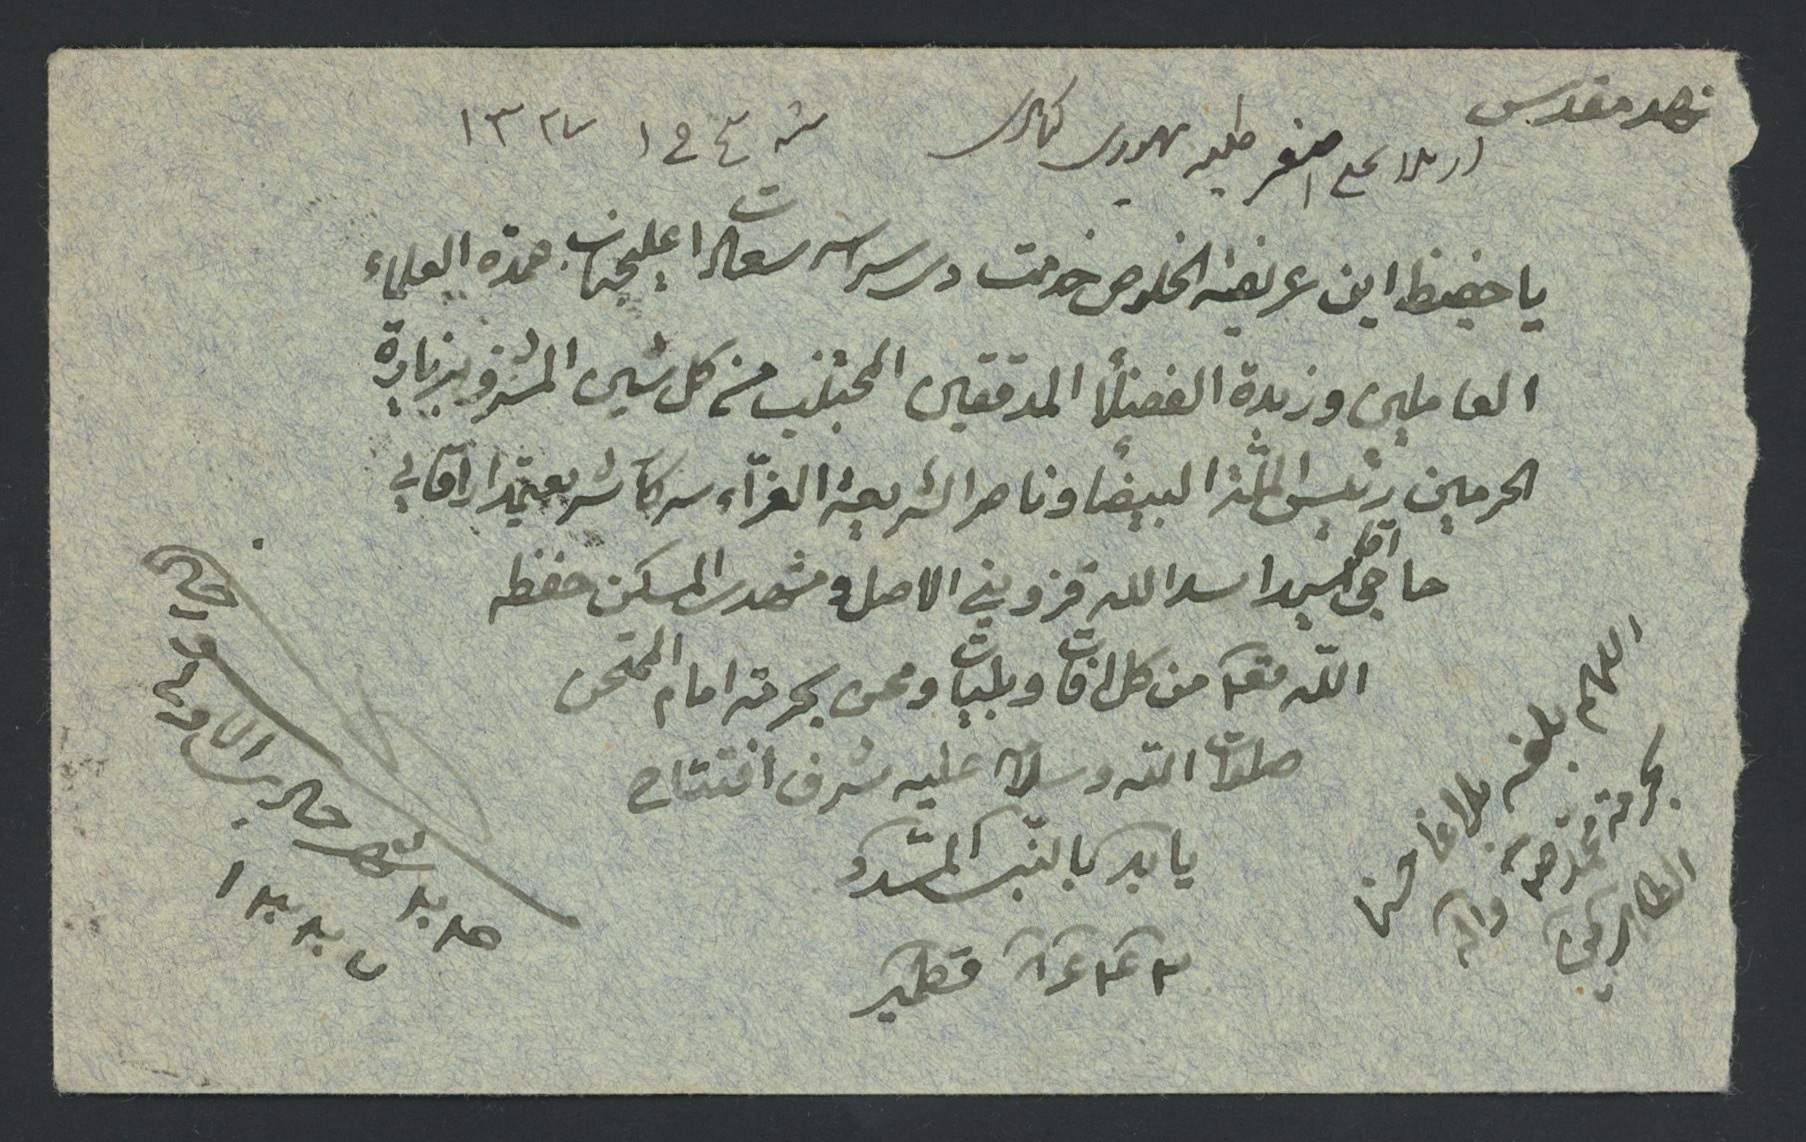 مشهد مقدس
از ملا علی اصغر طلبه یهودی کناری
شنبه ع ۱ ۱۳۲۷
یا حفیظ این عریضة الخلوص خدمت ذی سراسر سعادت اعلیجناب عمدة العلماء
العاملین و زبدة الفضلاء المدققین المجتنب من کل شین المشرف بزیارة
الحرمین رئیس الملة البیضا و ناصر الشریعة الغراء سرکار شریعتمدار آقای
حاجی آقا سید اسد الله قزوینی الاصل و مشهدی المسکن حفظه
الله من کل آفات و بلیات و محن بحرمة امام الممتحن
صلوات الله و سلامه علیه مشرف افتتاح
یابد بالنبی المسدد
قطمیر
اللهم بلغه بلاغا حسنا
بحرمة محمد و آله
الطاهرین
شهر جمادی الاولی